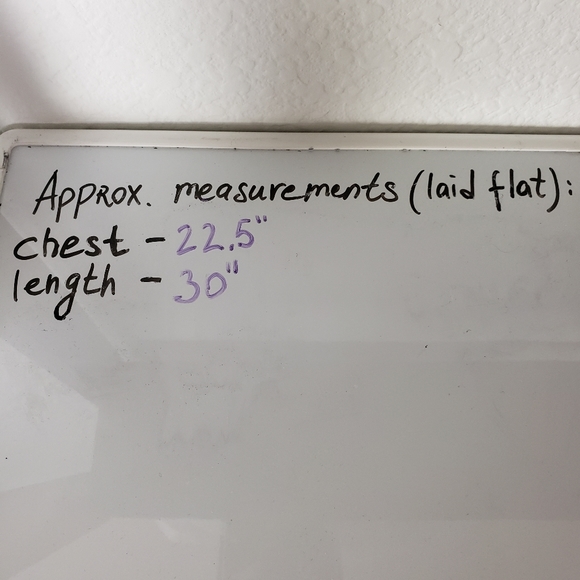 Approx. measurements (laid flat):
chest - 22.5"
length - 30"